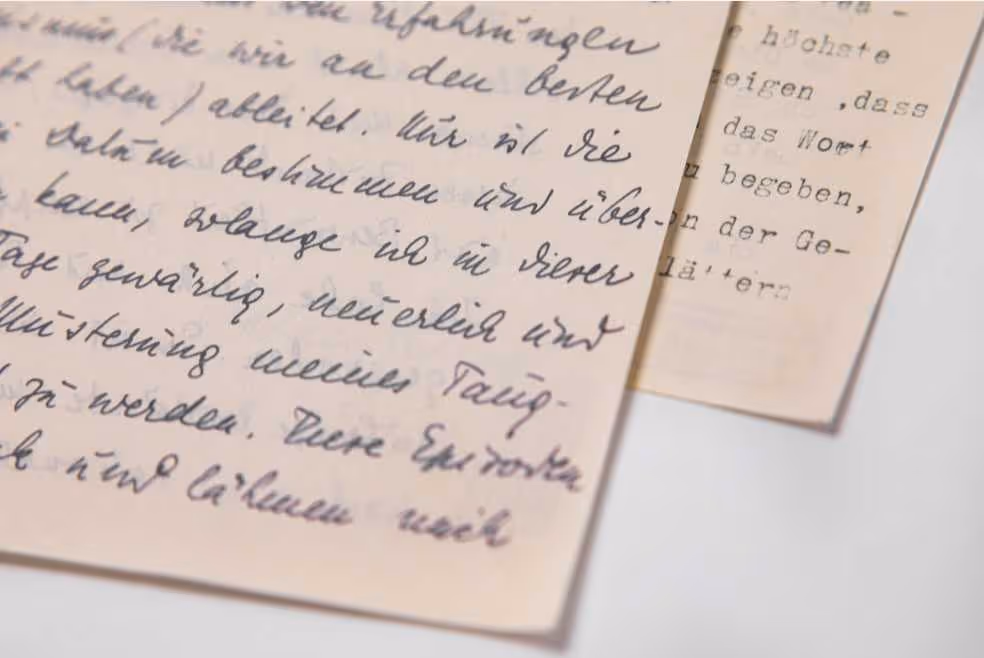 den Erfahrungen
(die wir an den besten
haben) ableitet. Nur ist die
Datum bestimmen und über-
kann, solange ich in dieser
Tage gewärtig, neuerlich und
Musterung meines Taug-
zu werden. Diese Episoden
und lähmen mich
höchste
zeigen ,dass
das Wort
begeben,
der Ge-